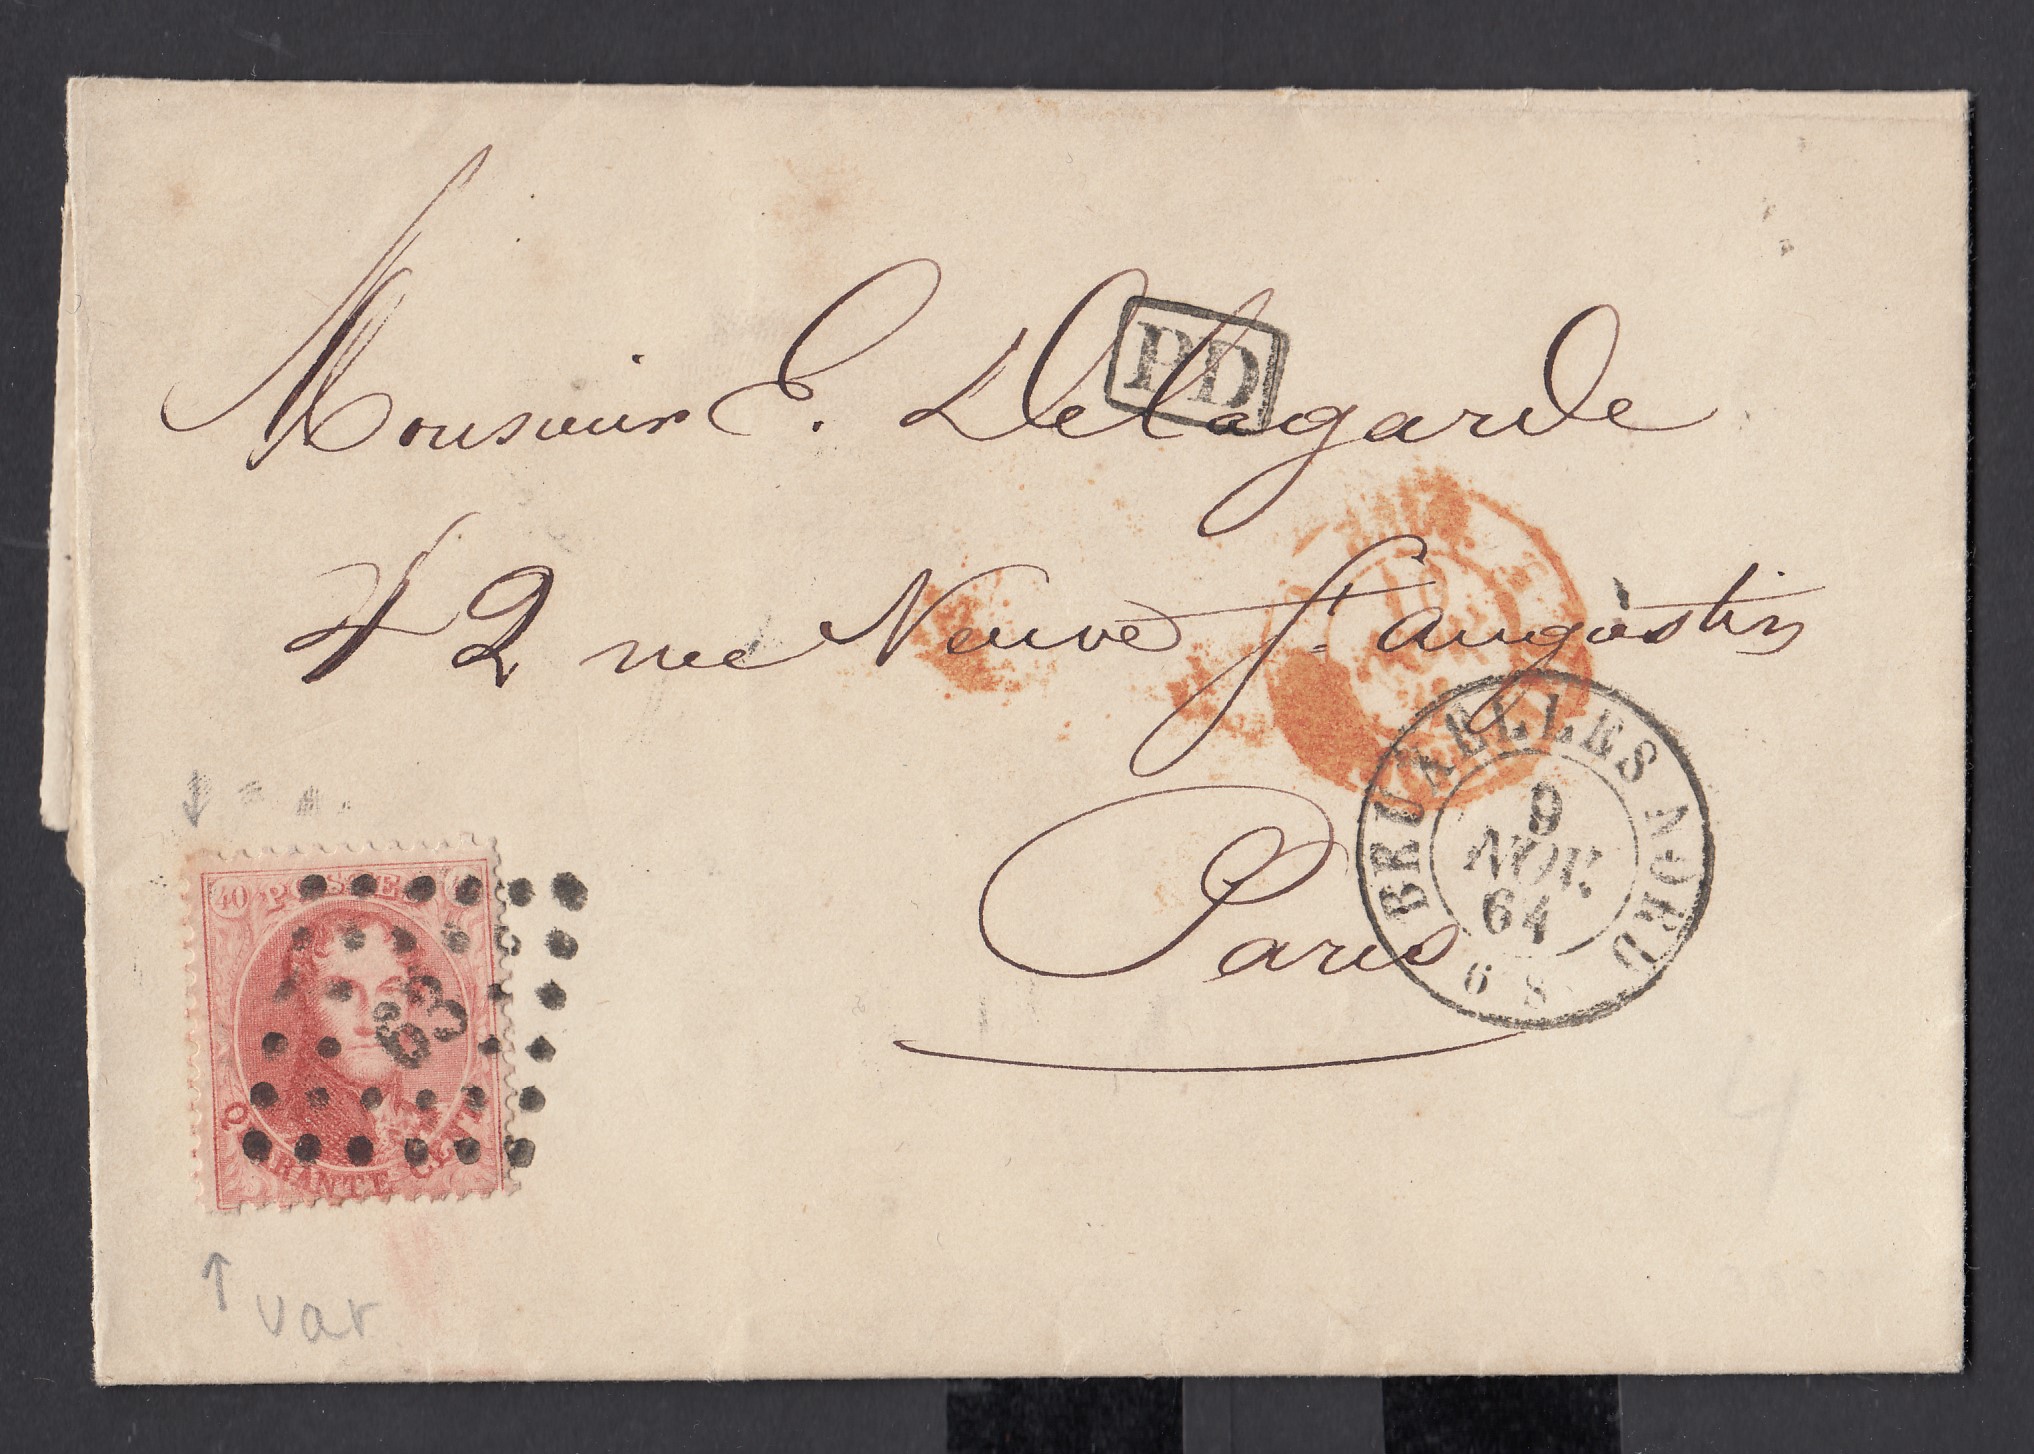 Monsieur E. Delagarde
PD
42 rue Neuve St. Augustin
Paris
BRUXELLES NORD
9
NOV.
64
6 S
40 POSTES
63
QUARANTE CENT
var
4